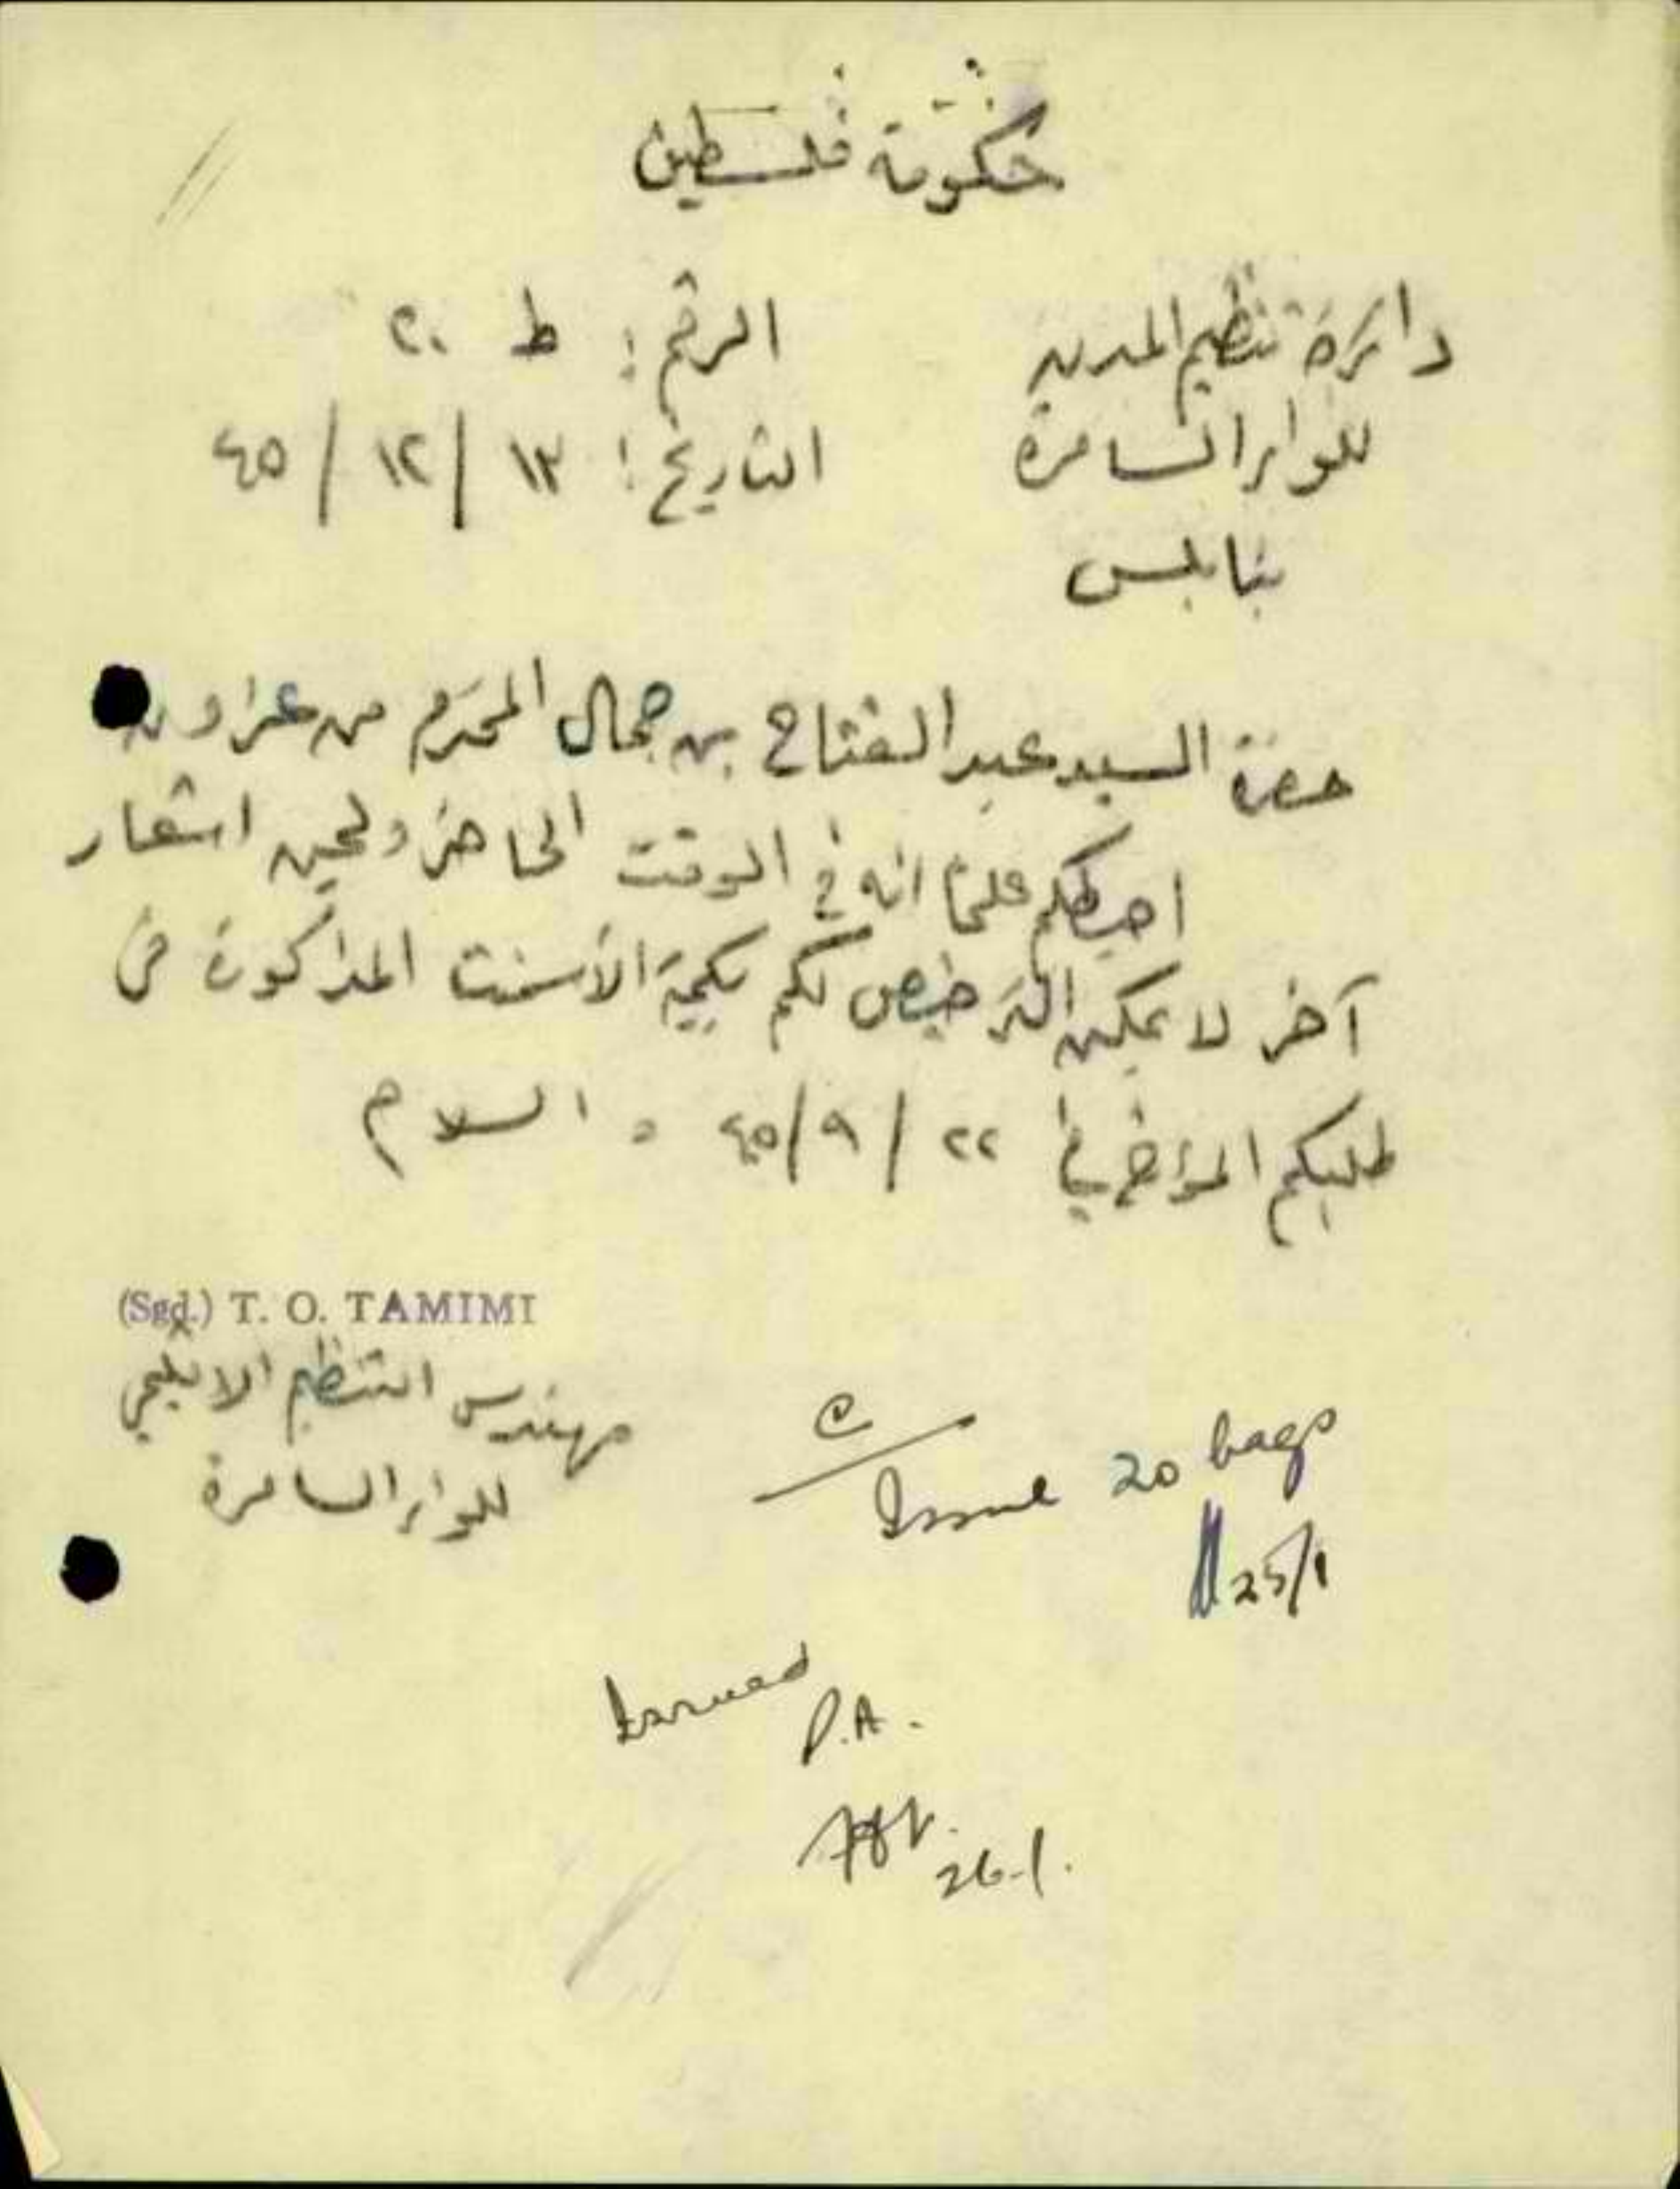 حكومة فلسطين
دائرة تنظيم المدن
للواء السامرة
بنابلس
الرقم: ط ٢٠
التاريخ: ١٣ / ١٢ / ٤٥
حضرة السيد عبد الفتاح بن جمال المحترم من عزون
احيطكم علمًا انه في الوقت الحاضر ولحين اشعار
آخر لا يمكن الترخيص لكم بكمية الأسمنت المذكورة في
طلبكم المؤرخ في ٢٢ / ٩ / ٤٥ والسلام
(Sgd.) T. O. TAMIMI
مهندس التنظيم الاقليمي
للواء السامرة
C
Issue 20 bags
25/1
Issued
P.A.
26.1.